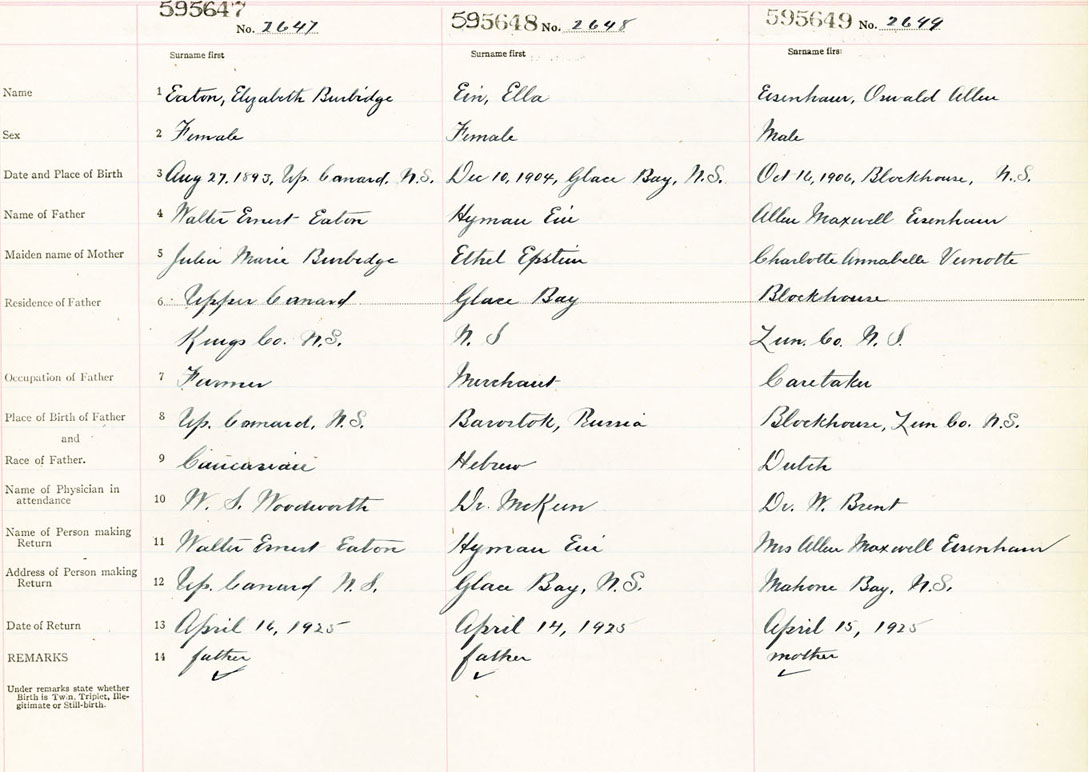 595647 No. 2647 595648 No. 2648 595649 No. 2649
Surname first Surname first Surname firs
Name 1 Eaton, Elizabeth Burbidge Ein, Ella Eisenhaur, Oswald Allen
Sex 2 Female Female Male
Date and Place of Birth 3 Aug 27, 1893, Up. Canard, N.S. Dec 10, 1904, Glace Bay, N.S. Oct 16, 1906, Blockhouse, N.S.
Name of Father 4 Walter Ernest Eaton Hyman Ein Allen Maxwell Eisenhaur
Maiden name of Mother 5 Julia Marie Burbidge Ethel Epstein Charlotte Annabelle Veinotte
Residence of Father 6 Upper Canard Glace Bay Blockhouse
Kings Co. N.S. N. S Lun. Co. N. S.
Occupation of Father 7 Farmer Merchant Caretaker
Place of Birth of Father 8 Up. Canard, N.S. Barostok, Russia Blockhouse, Lun Co. N.S.
and
Race of Father. 9 Caucasian Hebrew Dutch
Name of Physician in
attendance 10 W. S. Woodworth Dr. McKeen Dr. W. Brent
Name of Person making
Return 11 Walter Ernest Eaton Hyman Ein Mrs Allen Maxwell Eisenhaur
Address of Person making
Return 12 Up. Canard N.S. Glace Bay, N.S. Mahone Bay, N.S.
Date of Return 13 April 16, 1925 April 14, 1925 April 15, 1925
REMARKS 14 father father mother
Under remarks state whether
Birth is Twin, Triplet, Ille-
gitimate or Still-birth.